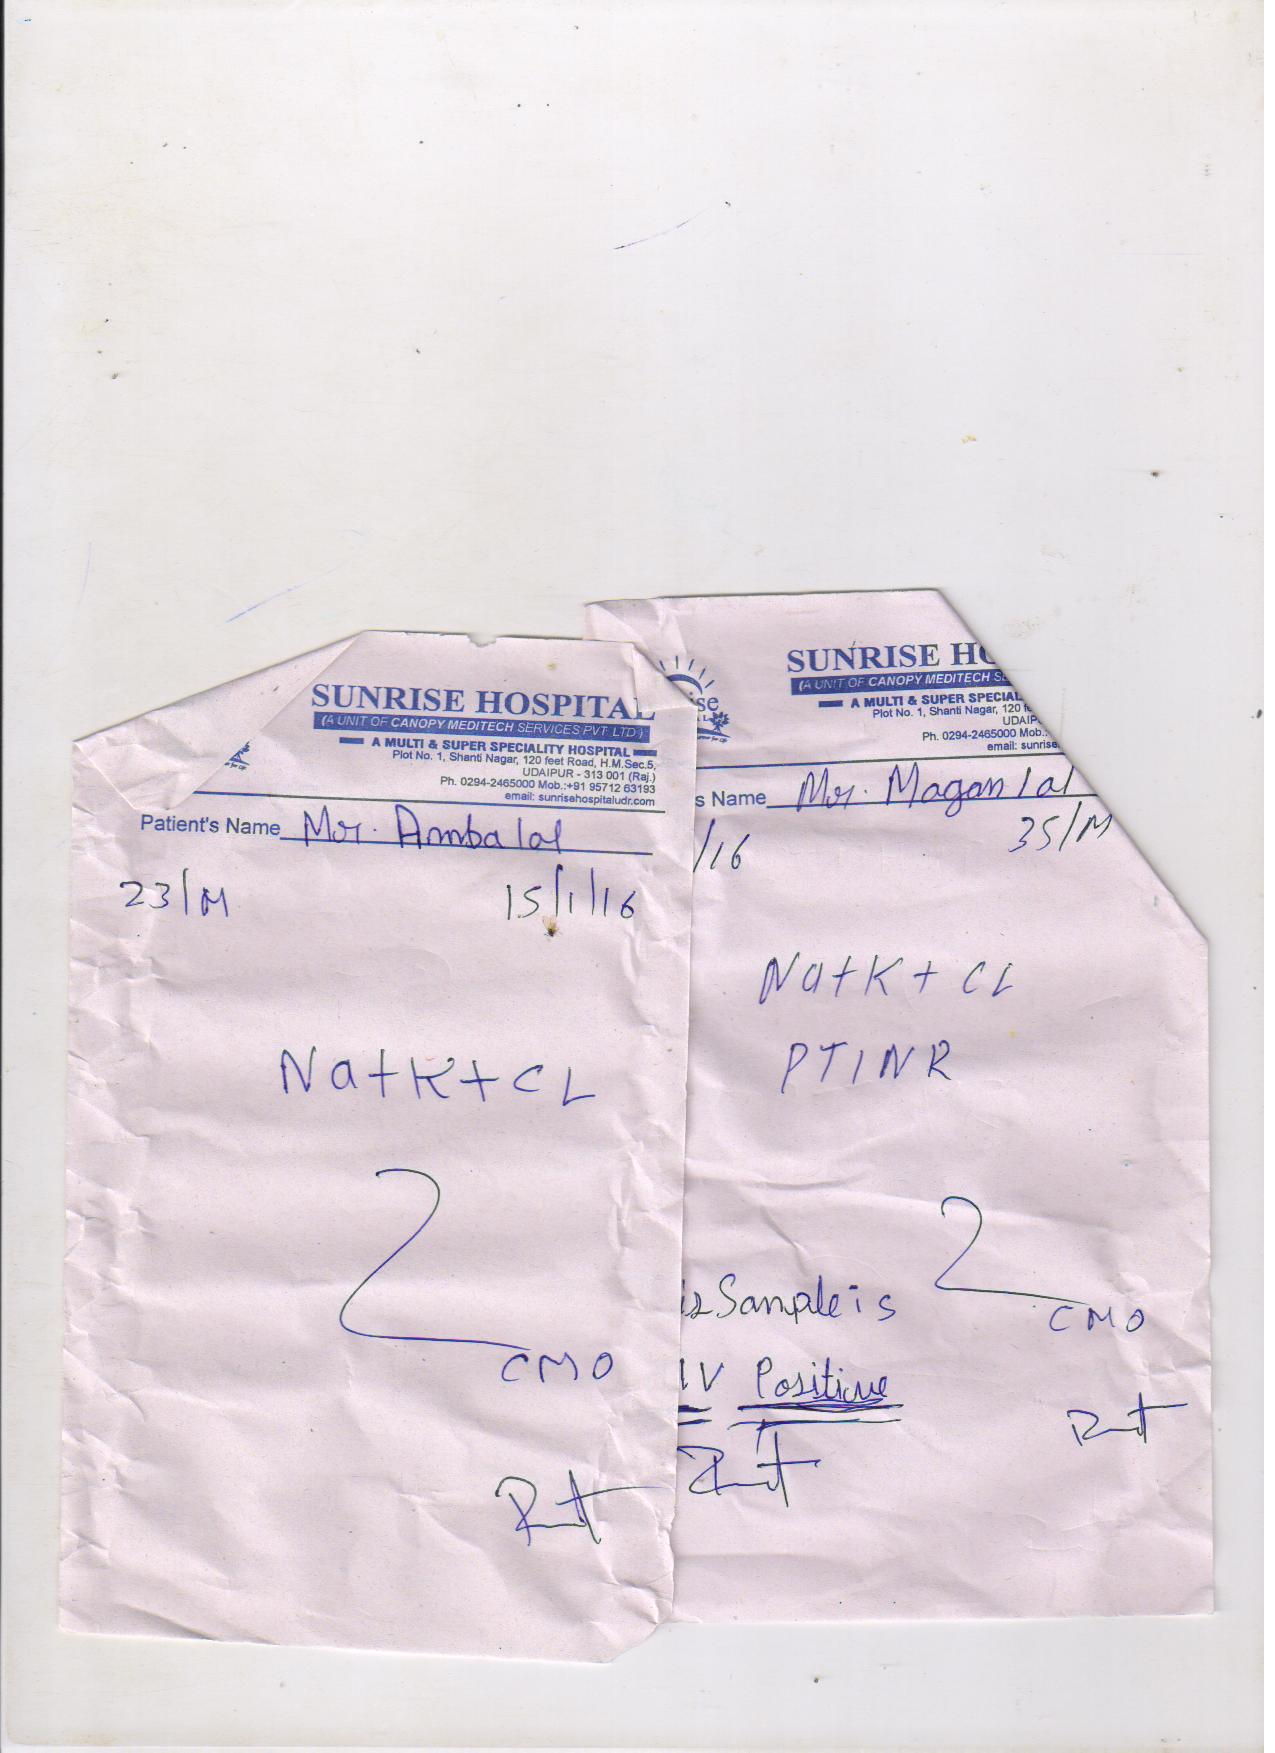 SUNRISE HOSPITAL
(A UNIT OF CANOPY MEDITECH SERVICES PVT. LTD.)
A MULTI & SUPER SPECIALITY HOSPITAL
Plot No. 1, Shanti Nagar, 120 feet Road, H.M.Sec.5,
UDAIPUR - 313 001 (Raj.)
Ph. 0294-2465000 Mob.:+91 95712 63193
email: sunrisehospitaludr.com
Patient's Name Mr. Ambalal
23/M 15/1/16
Na+K+CL
CMO
SUNRISE HO
(A UNIT OF CANOPY MEDITECH SE
A MULTI & SUPER SPECIAL
Plot No. 1, Shanti Nagar, 120 fe
UDAIP
Ph. 0294-2465000 Mob.:
email: sunrise
s Name Mr. Maganlal
/16 35/M
Na+K+CL
PTINR
is Sample is
CMO
IV Positive